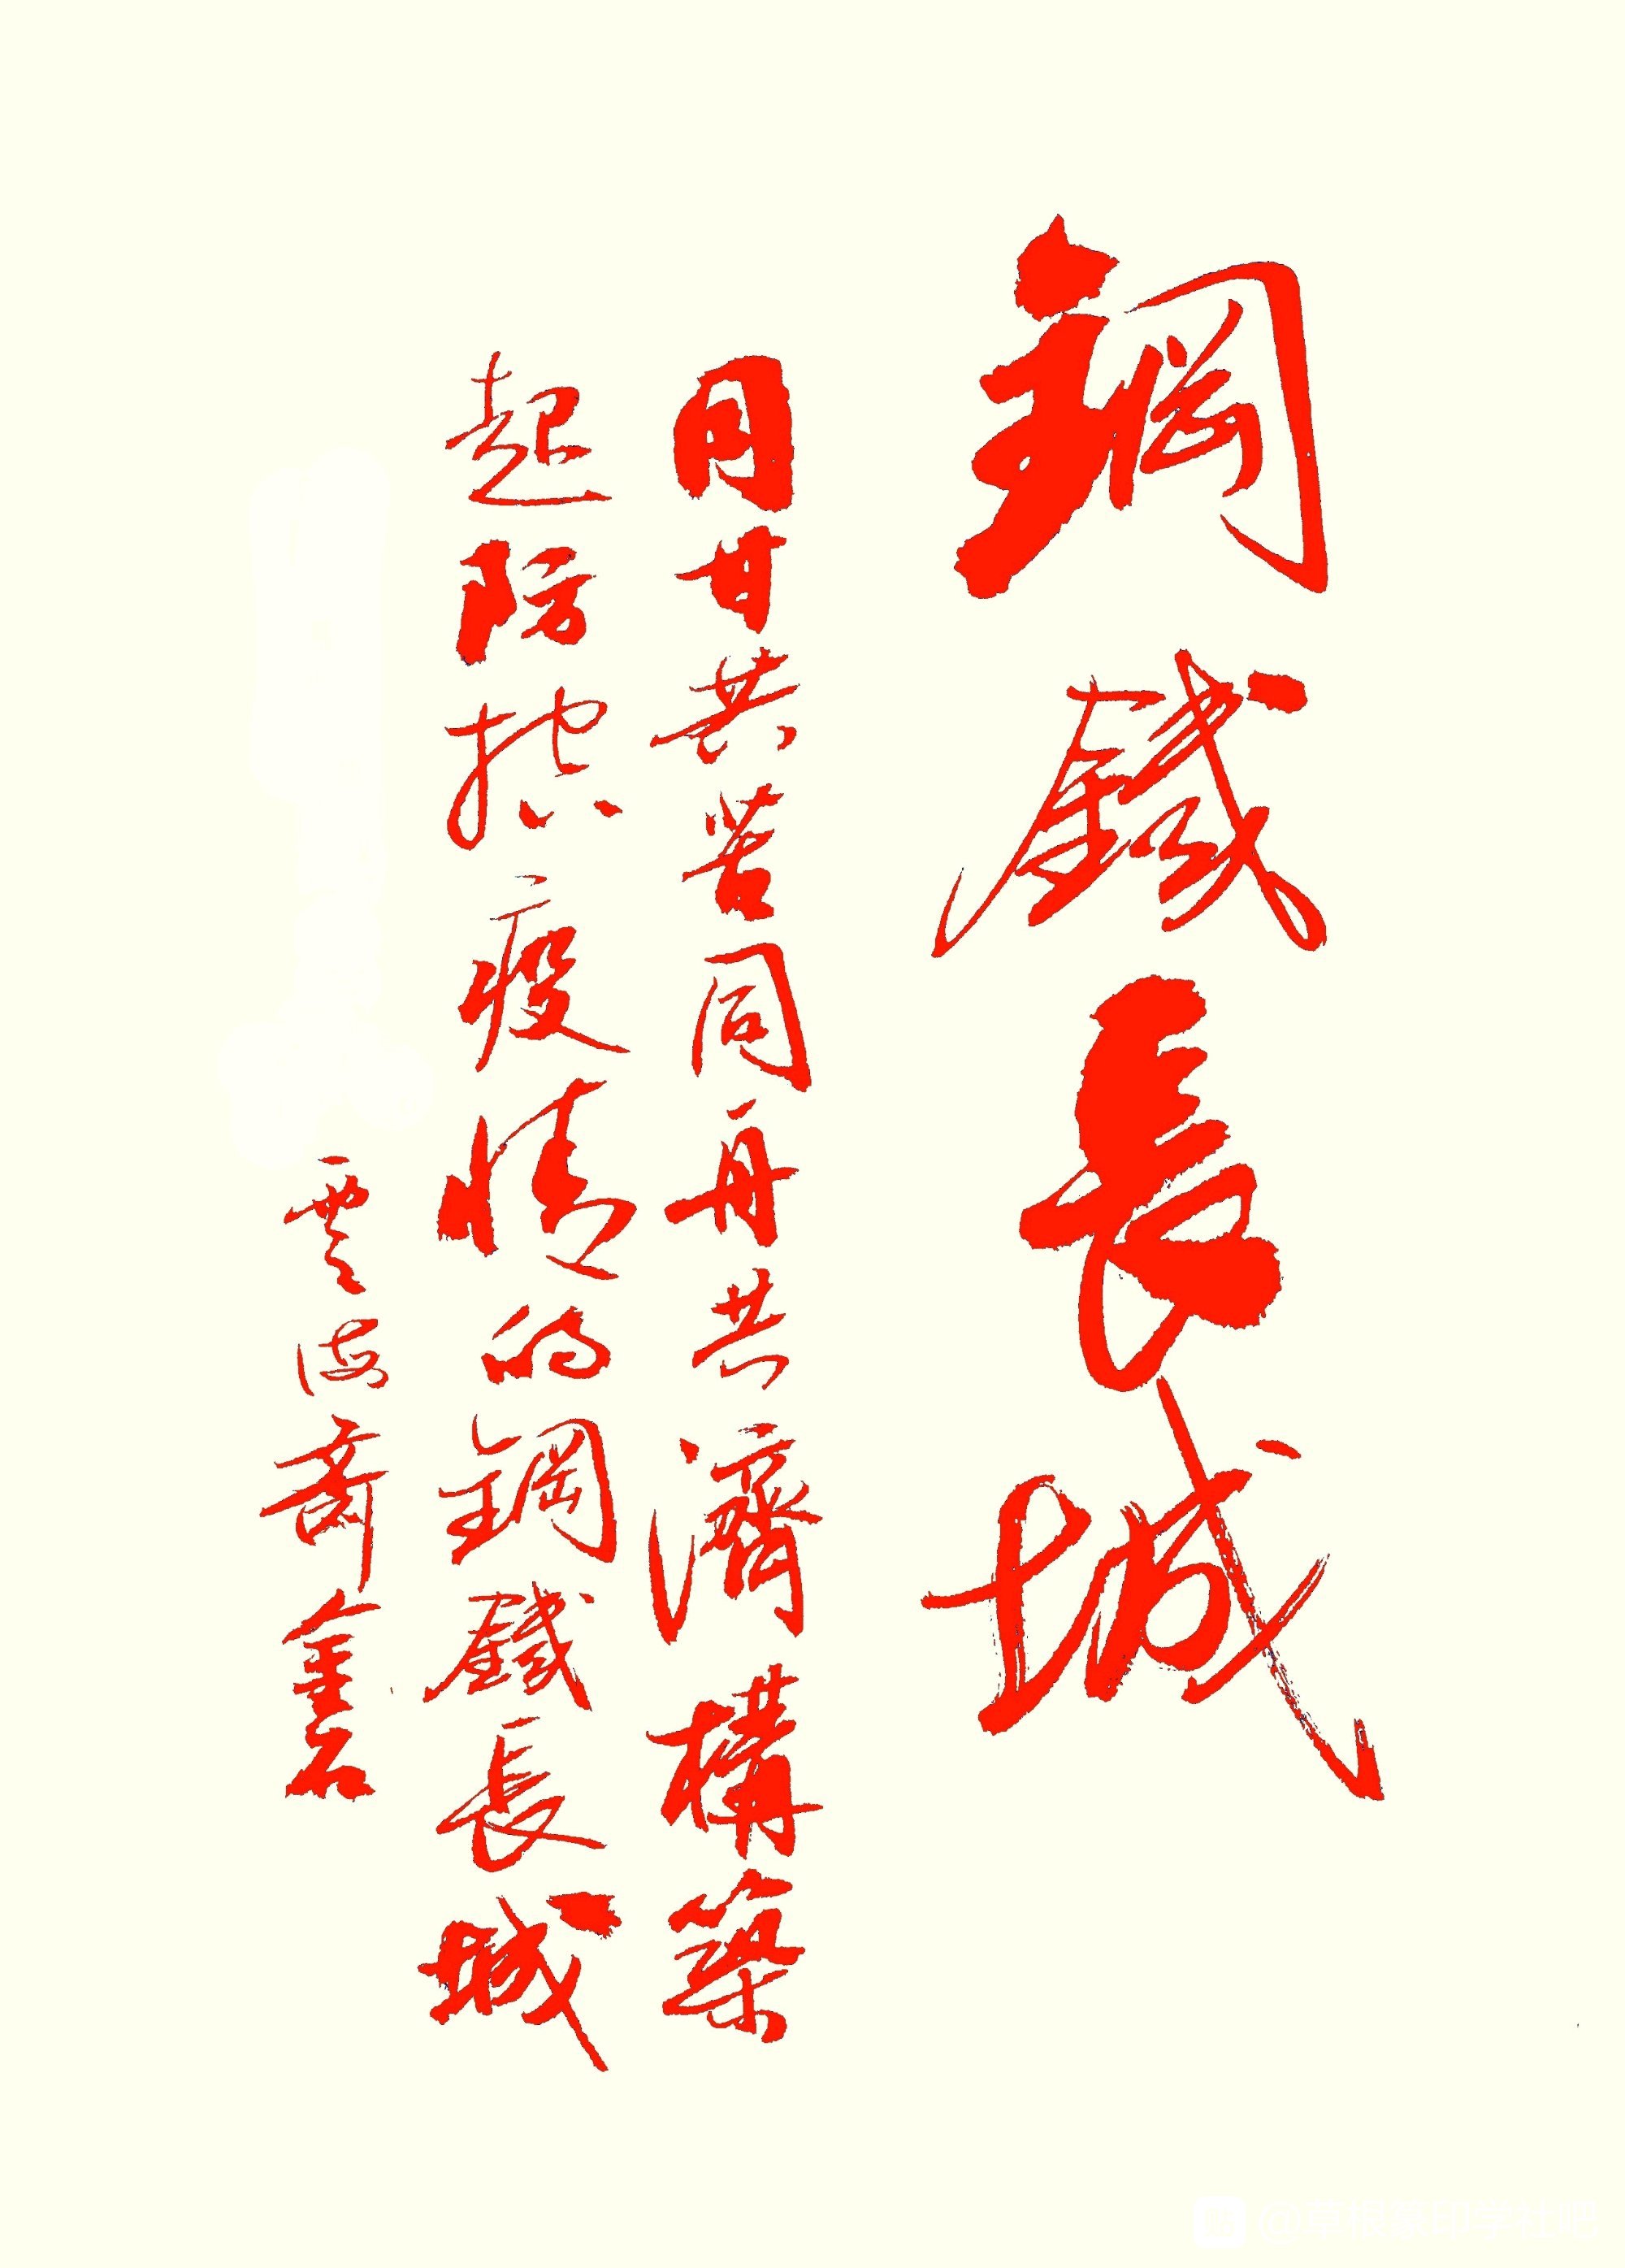 鋼鐵長城
同甘共苦同舟共濟構築
起防控疫情的鋼鐵長城
雲海齋鑫石